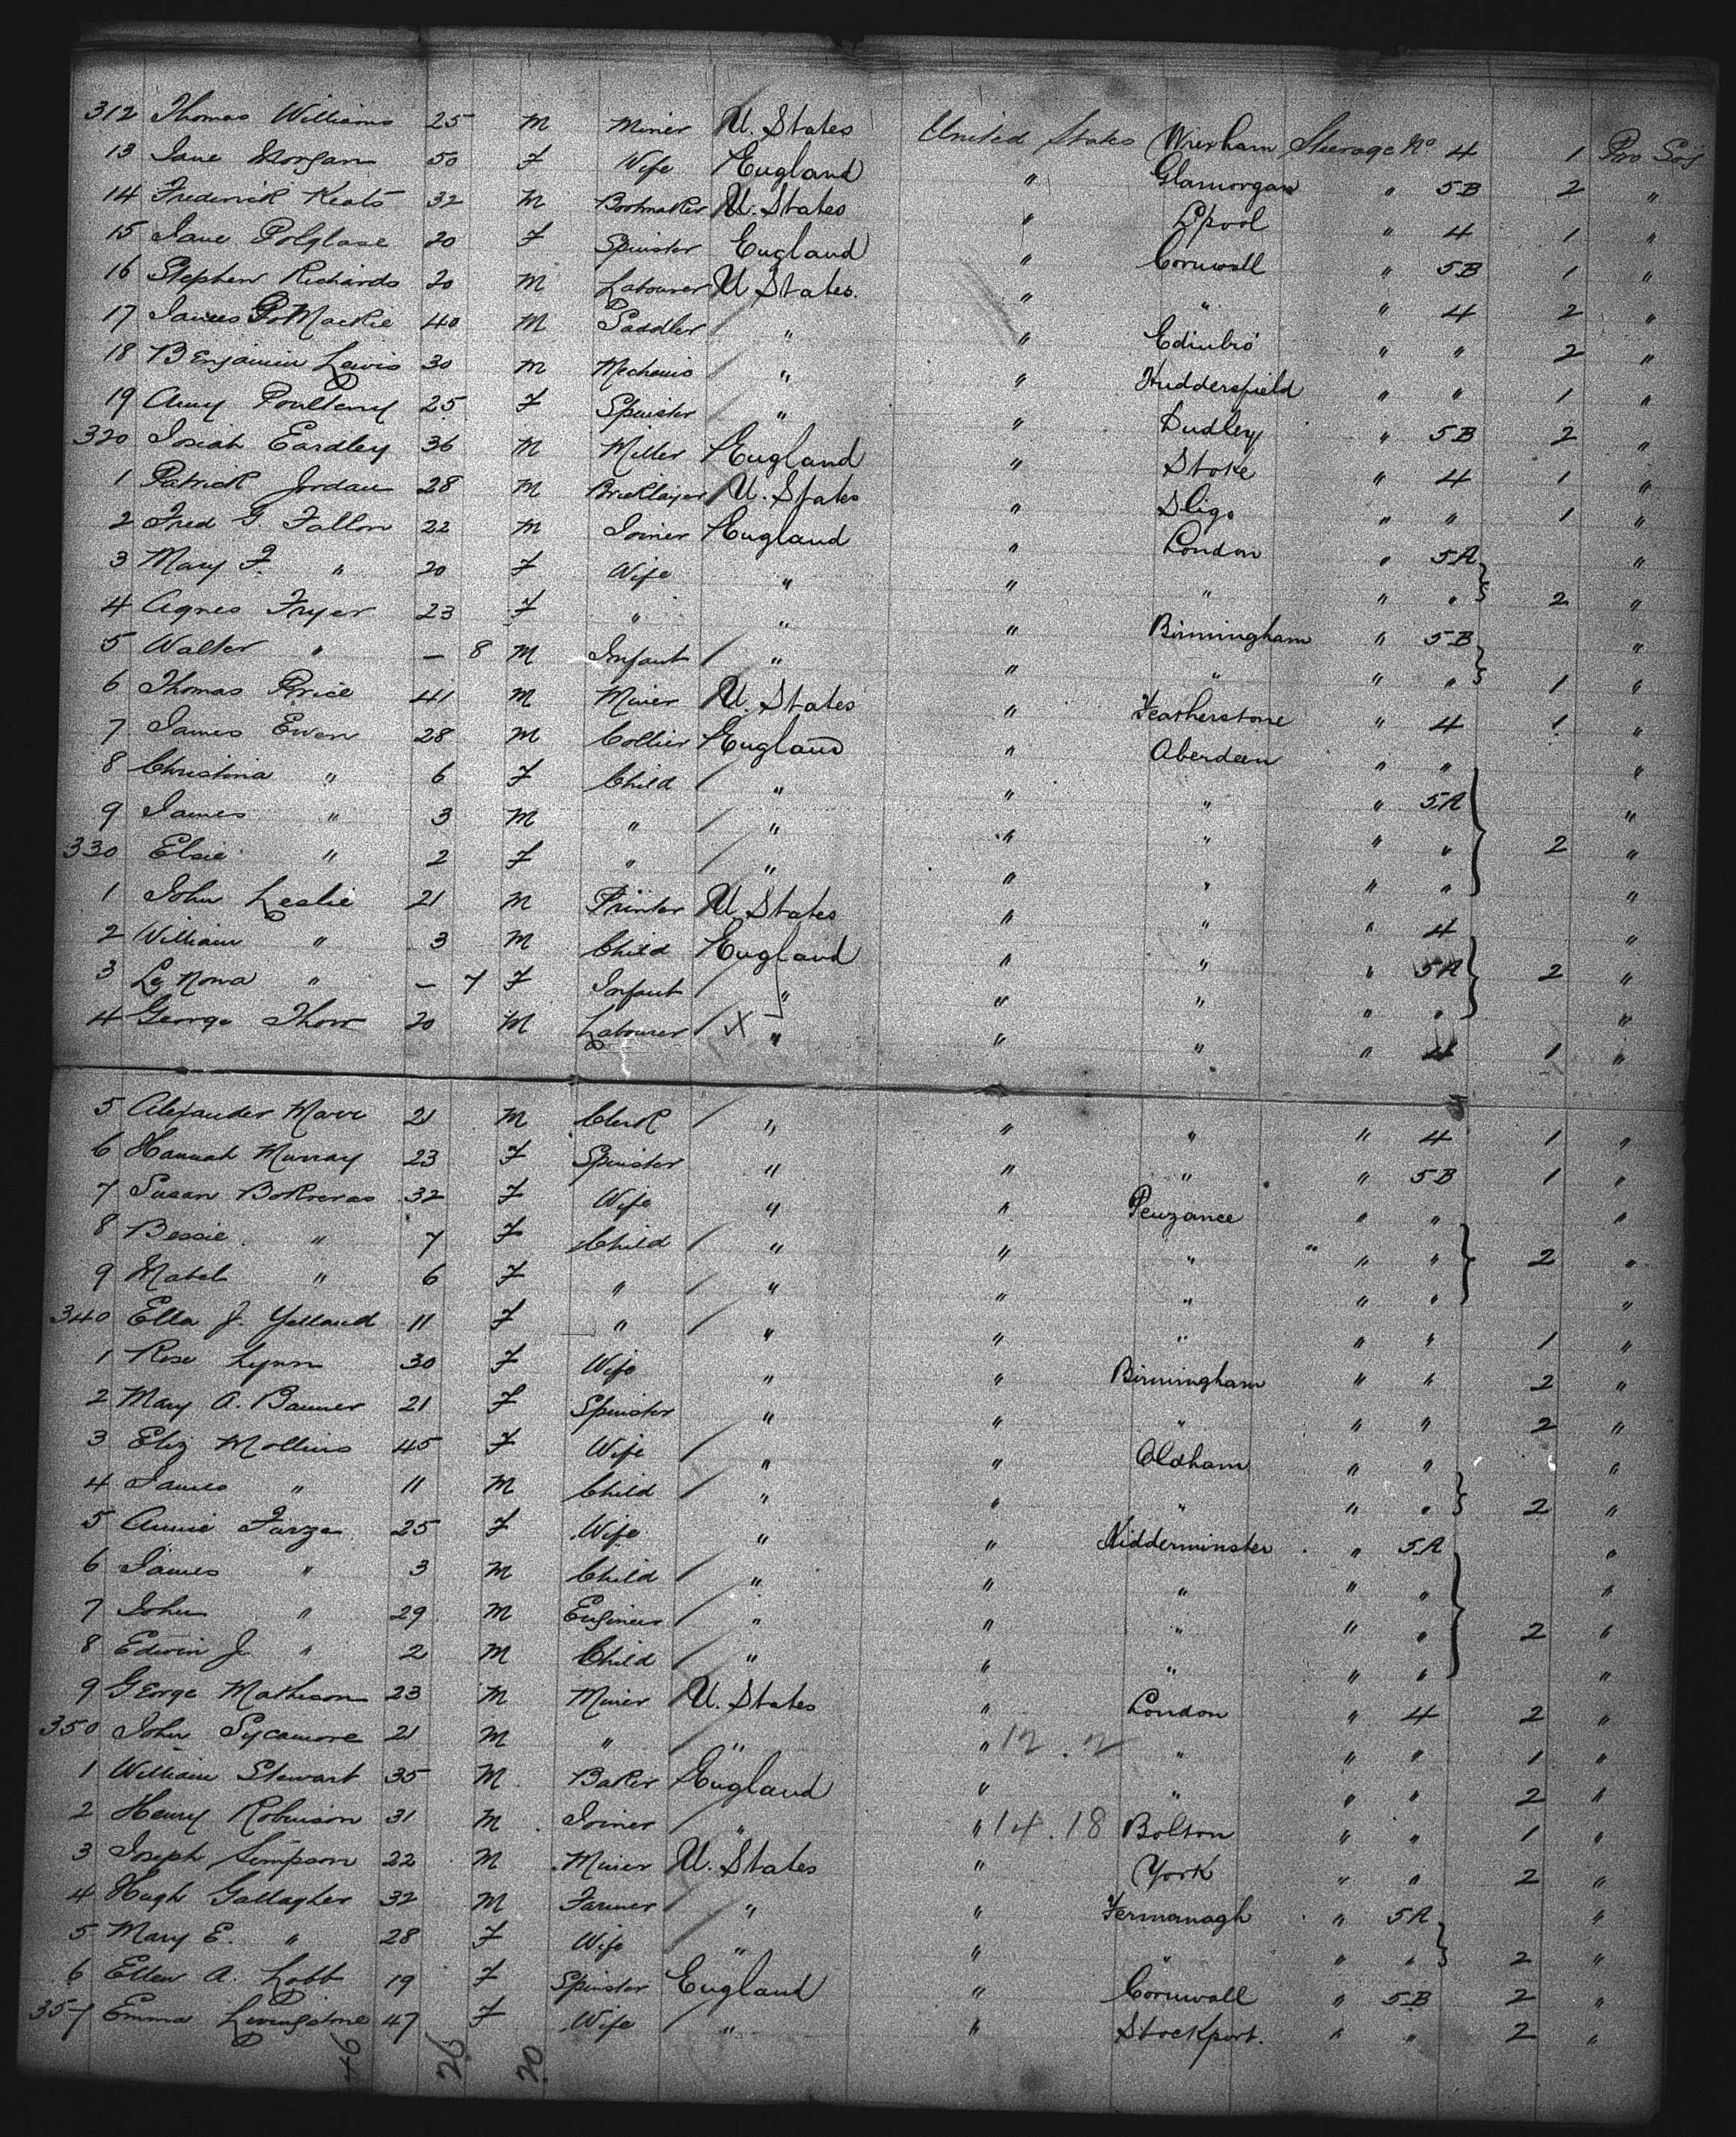 312 Thomas Williams 25 M Miner U. States United States Wrexham Steerage No 4 1 Pro Soj
13 Jane Morgan 50 F Wife England " Glamorgan " 5B 2 "
14 Frederick Keats 32 M Bootmaker U. States " L'pool " 4 1 "
15 Jane Polglase 20 F Spinster England " Cornwall " 5B 1 "
16 Stephen Richards 20 M Labourer U. States. " " " 4 2 "
17 James Mackie 40 M Saddler " " Edinbro' " " 2 "
18 Benjamin Lewis 30 M Mechanic " " Huddersfield " " 1 "
19 Amy Poulteny 25 F Spinster " " Dudley " 5B 2 "
320 Josiah Eardley 36 M Miller England " Stoke " 4 1 "
1 Patrick Jordan 28 M Bricklayer U. States " Sligo " " 1 "
2 Fred G Fallon 22 M Joiner England " London " 5A "
3 Mary F. " 20 F Wife " " " " " 2 "
4 Agnes Fryer 23 F " " " Birmingham " 5B "
5 Walter " — 8 M Infant " " " " " 1 "
6 Thomas Price 41 M Miner U. States " Featherstone " 4 1 "
7 James Ewen 28 M Collier England " Aberdeen " " "
8 Christina " 6 F Child " " " " 5A "
9 James " 3 M " " " " " " 2 "
330 Elsie " 2 F " " " " " " "
1 John Leslie 21 M Printer U. States " " " 4 "
2 William " 3 M Child England " " " 5A 2 "
3 " — 7 F Infant " " " " " "
4 George Thow 20 M Labourer X " " " " 4 1 "
5 Alexander Marr 21 M Clerk " " " " 4 1 "
6 Hannah Murray 23 F Spinster " " " " 5B 1 "
7 Susan 32 F Wife " " Penzance " " "
8 Bessie " 7 F Child " " " " " 2 "
9 Mabel " 6 F " " " " " " "
340 Ella J. Yelland 11 F " " " " " " 1 "
1 Rose Lynn 30 F Wife " " Birmingham " " 2 "
2 Mary A. Banner 21 F Spinster " " " " " 2 "
3 Eliz Mollins 45 F Wife " " Oldham " " "
4 James " 11 M Child " " " " " 2 "
5 Annie 25 F Wife " " Kidderminster " 5A "
6 James " 3 M Child " " " " " "
7 John " 29 M Engineer " " " " " 2 "
8 Edwin J. " 2 M Child " " " " " "
9 George Mathieson 23 M Miner U. States " London " 4 2 "
350 John Sycamore 21 M " " " 12.2 " " " 1 "
1 William Stewart 35 M Baker England " " " " 2 "
2 Henry Robinson 31 M Joiner " " 14.18 Bolton " " 1 "
3 Joseph Simpson 22 M Miner U. States " York " " 2 "
4 Hugh Gallagher 32 M Farmer " " Fermanagh " 5A "
5 Mary E. " 28 F Wife " " " " " 2 "
6 Ellen A. Lobb 19 F Spinster England " Cornwall " 5B 2 "
357 Emma Livingstone 47 F Wife " " Stockport. " " 2 "
46 26 20